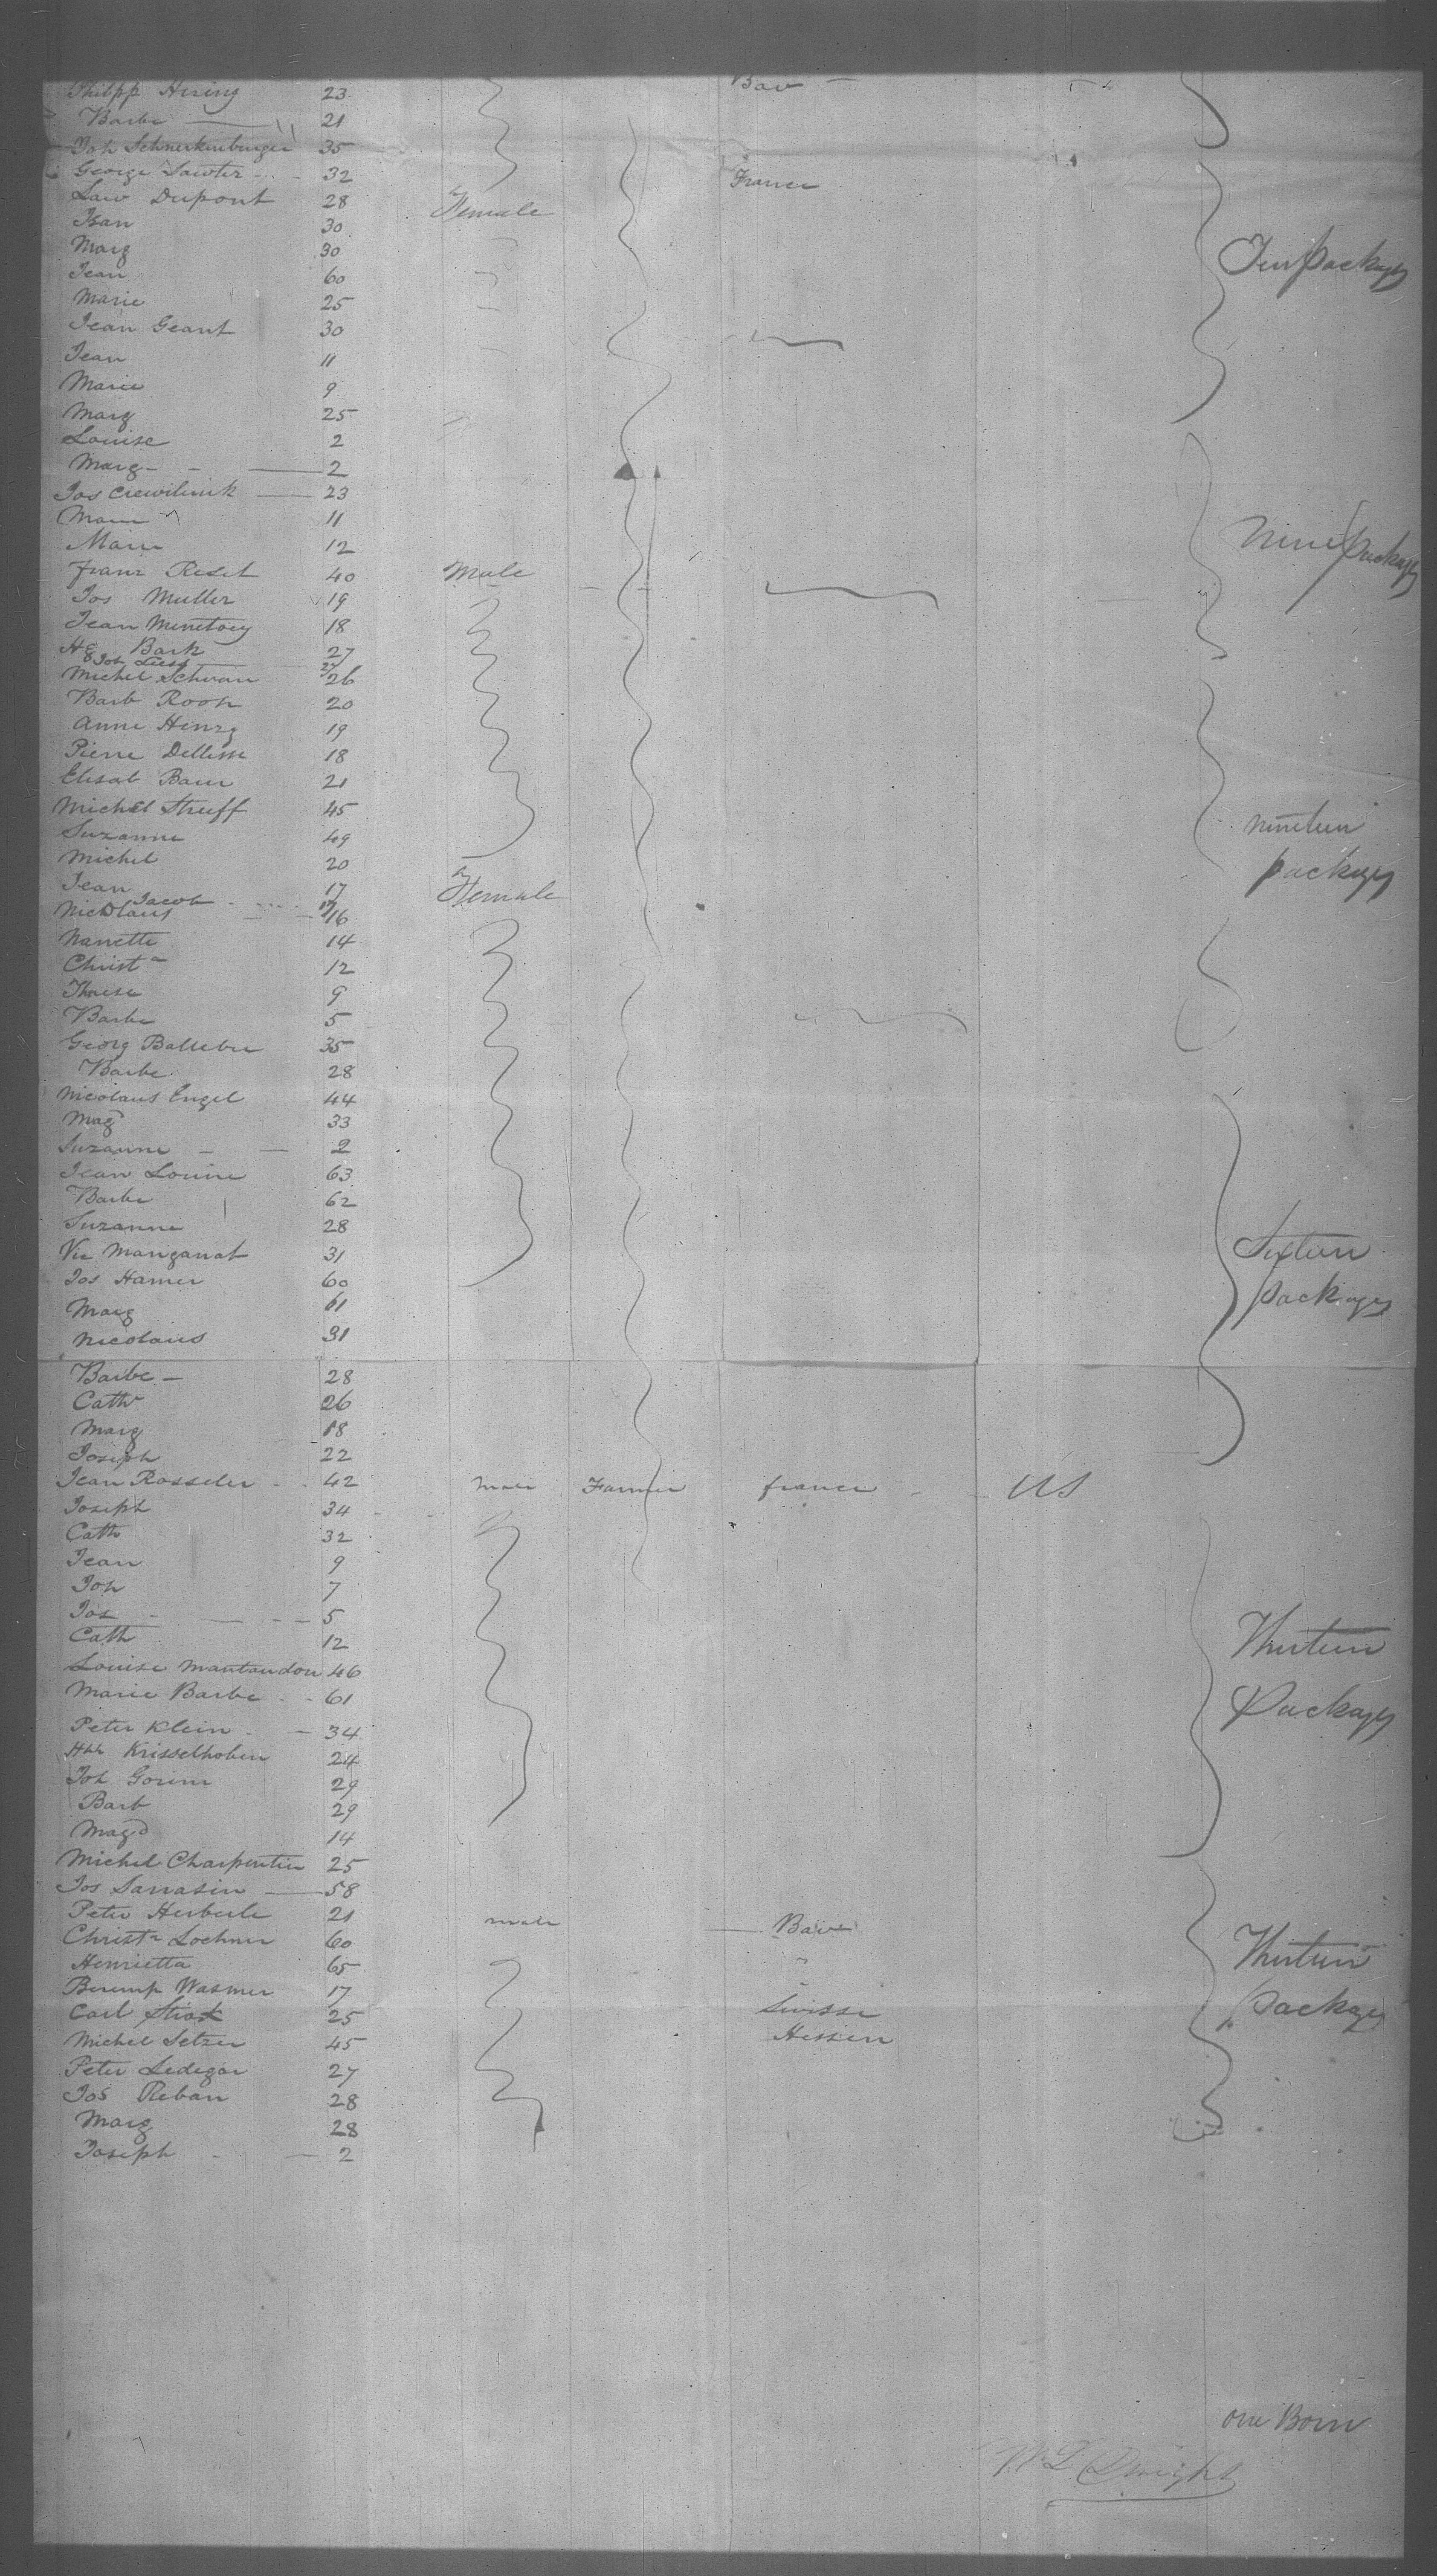 Philpp Hering 23 Bav
Barbe 21
Joh Schneckenburger 35
George Sawter 32 France
Law Dupont 28 Female
Jean 30
Marg 30 Ten packages
Jean 60
Marie 25
Jean Geant 30
Jean 11
Marie 9
Marg 25
Louise 2
Marg 2
Jos 23
11 Nine packages
Marie 12
Franz 40 Male
Jos Muller 19
Jean 18
Hy Bark 27
Jos 27
Michel Schwan 26
Barb Rooh 20
Anne Henry 19
Pierre 18
Elisab Baur 21
Michel Streff 45 nineteen
Suzanne 49
Michel 20 packages
Jean 17 Female
Jacob 17
Nicolaus 16
Nanette 14
Christ a 12
Therese 9
Barbe 5
Georg 35
Barbe 28
Nicolaus Engel 44
Magd 33
Suzanne 2
Jean Louire 63
Barbe 62
Suzanne 28
Vic Manganat 31 Sixteen
Jos Hamer 60 packages
Marg 61
Nicolaus 31
Barbe 28
Cath 26
Marg 18
Joseph 22
Jean Rosseler 42 male Farmer france US
Joseph 34
Cath 32
Jean 9
Joh 7
Jos 5
Cath 12 Thirteen
Louise Mantandon 46
Marie Barbe 61 Packages
Peter Klein 34
Hh Krisselhoben 24
Joh Gorim 29
Barb 29
Magd 14
Michel Charpentier 25
Jos Sarrasin 58
Peter Herberle 21 male Bav
Christn Lochner 60 Thirteen
Henrietta 65 "
Wasmer 17 packages
Carl 25 Swisse
Michel Setzer 45 Hessen
Peter Ledegar 27
Jos Reban 28
Marg 28
Joseph 2
one Born
W L Dwight